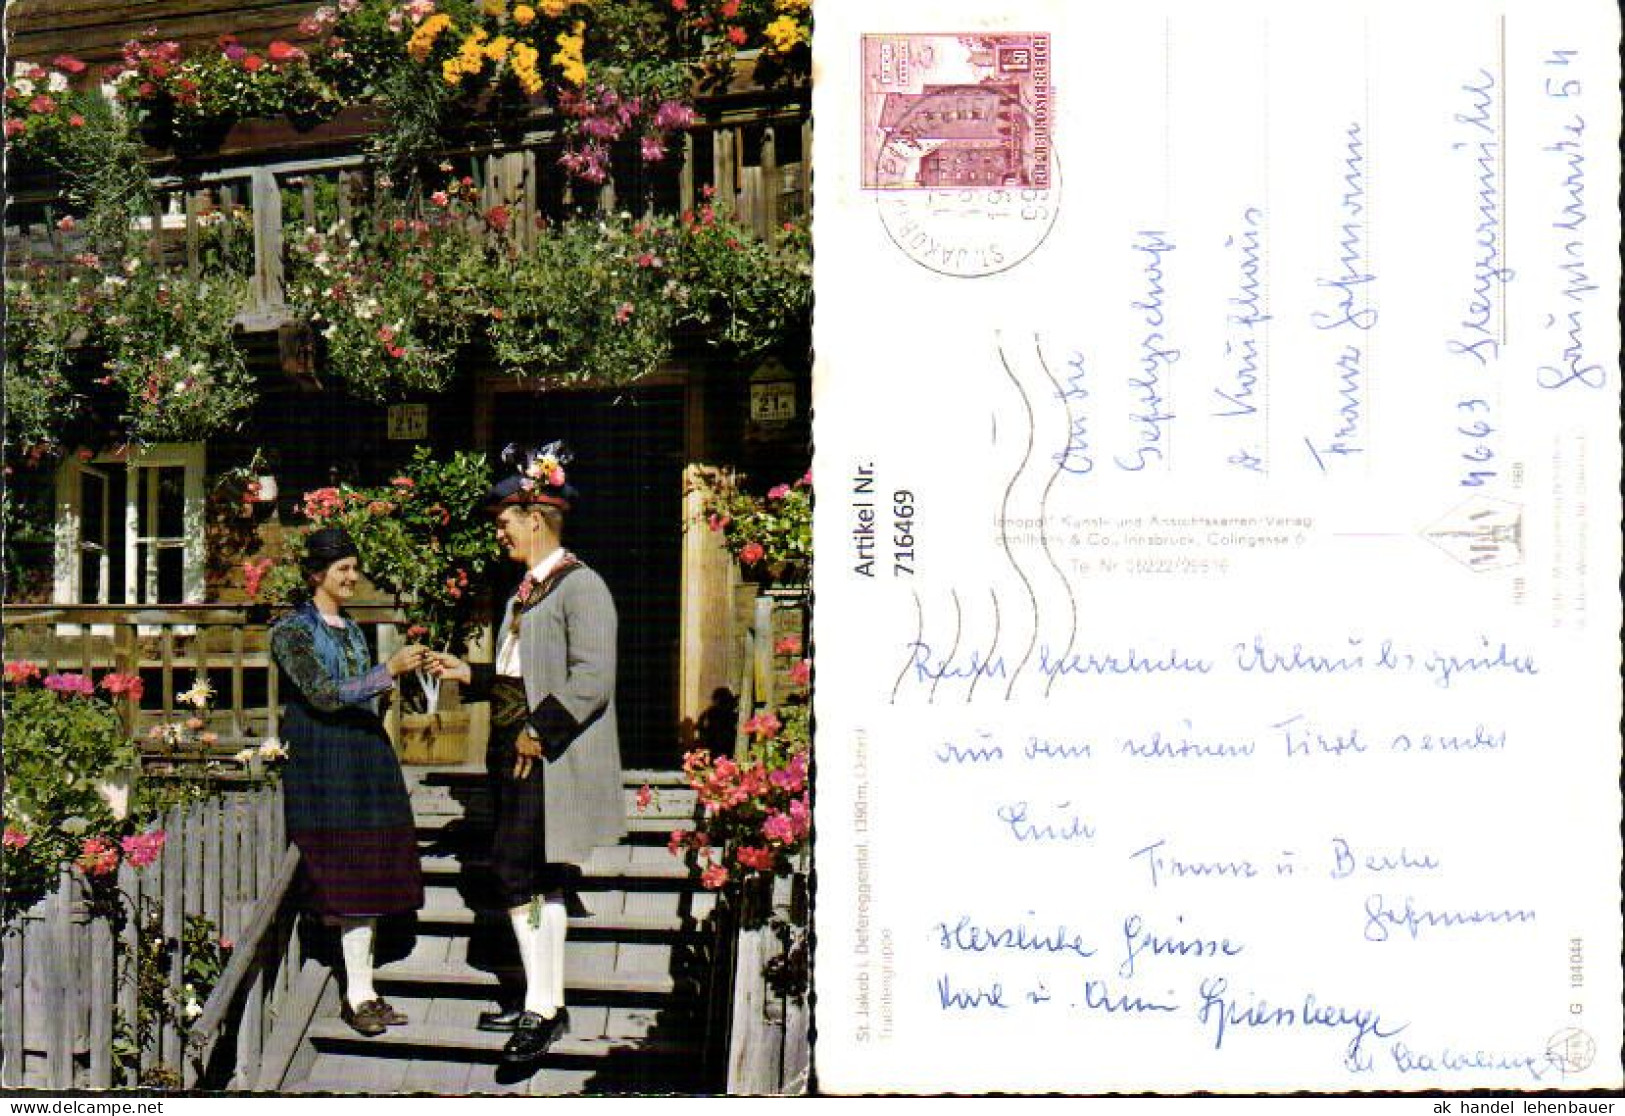 21
21
REPUBLIK ÖSTERREICH
1.50
ST. JAKOB
An die
Gefolgschaft
d. Kaufhaus
Franz Gaßmann
4663 Steyrermühl
Hauptstraße 54
Kunst- und Ansichtskarten-Verlag
& Co., Innsbruck, Colingasse 6
Tel. Nr.
Artikel Nr.
716469
Recht herzliche Urlaubsgrüße
aus dem schönen Tirol sendet
Euch
Franz u. Berta
Gaßmann
Herzliche Grüsse
Karl u. Anni
St. Jakob i. Defereggental, 1390 m, Osttirol
Trachtengruppe
G 184044
ak handel lehenbauer